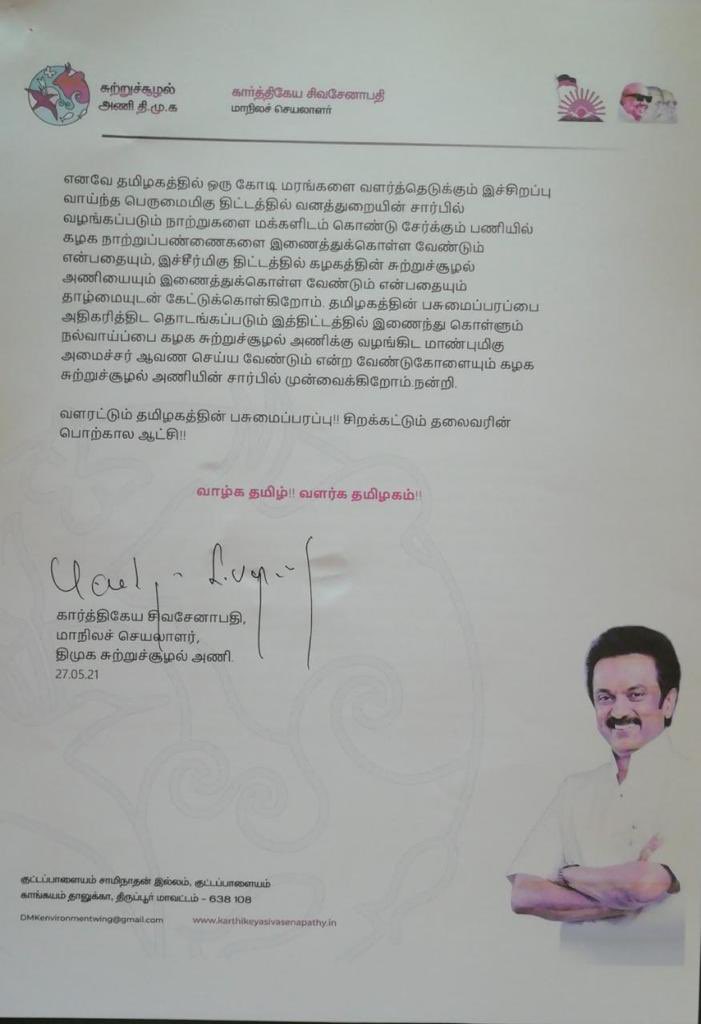 சுற்றுச்சூழல்
அணி தி.மு.க
கார்த்திகேய சிவசேனாபதி
மாநிலச் செயலாளர்
எனவே தமிழகத்தில் ஒரு கோடி மரங்களை வளர்த்தெடுக்கும் இச்சிறப்பு
வாய்ந்த பெருமைமிகு திட்டத்தில் வனத்துறையின் சார்பில்
வழங்கப்படும் நாற்றுகளை மக்களிடம் கொண்டு சேர்க்கும் பணியில்
கழக நாற்றுப்பண்ணைகளை இணைத்துக்கொள்ள வேண்டும்
என்பதையும், இச்சீர்மிகு திட்டத்தில் கழகத்தின் சுற்றுச்சூழல்
அணியையும் இணைத்துக்கொள்ள வேண்டும் என்பதையும்
தாழ்மையுடன் கேட்டுக்கொள்கிறோம். தமிழகத்தின் பசுமைப்பரப்பை
அதிகரித்திட தொடங்கப்படும் இத்திட்டத்தில் இணைந்து கொள்ளும்
நல்வாய்ப்பை கழக சுற்றுச்சூழல் அணிக்கு வழங்கிட மாண்புமிகு
அமைச்சர் ஆவண செய்ய வேண்டும் என்ற வேண்டுகோளையும் கழக
சுற்றுச்சூழல் அணியின் சார்பில் முன்வைக்கிறோம்.நன்றி.
வளரட்டும் தமிழகத்தின் பசுமைப்பரப்பு!! சிறக்கட்டும் தலைவரின்
பொற்கால ஆட்சி!!
வாழ்க தமிழ்!! வளர்க தமிழகம்!!
கார்த்திகேய சிவசேனாபதி,
மாநிலச் செயலாளர்,
திமுக சுற்றுச்சூழல் அணி.
27.05.21
குட்டப்பாளையம் சாமிநாதன் இல்லம், குட்டப்பாளையம்
காங்கயம் தாலுக்கா, திருப்பூர் மாவட்டம் - 638 108
DMKenvironmentwing@gmail.com www.karthikeyasivasenapathy.in